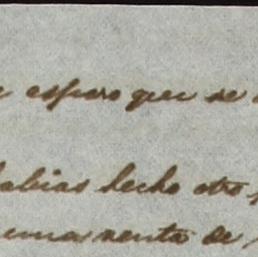 espero que se
habias hecho otro
una renta de